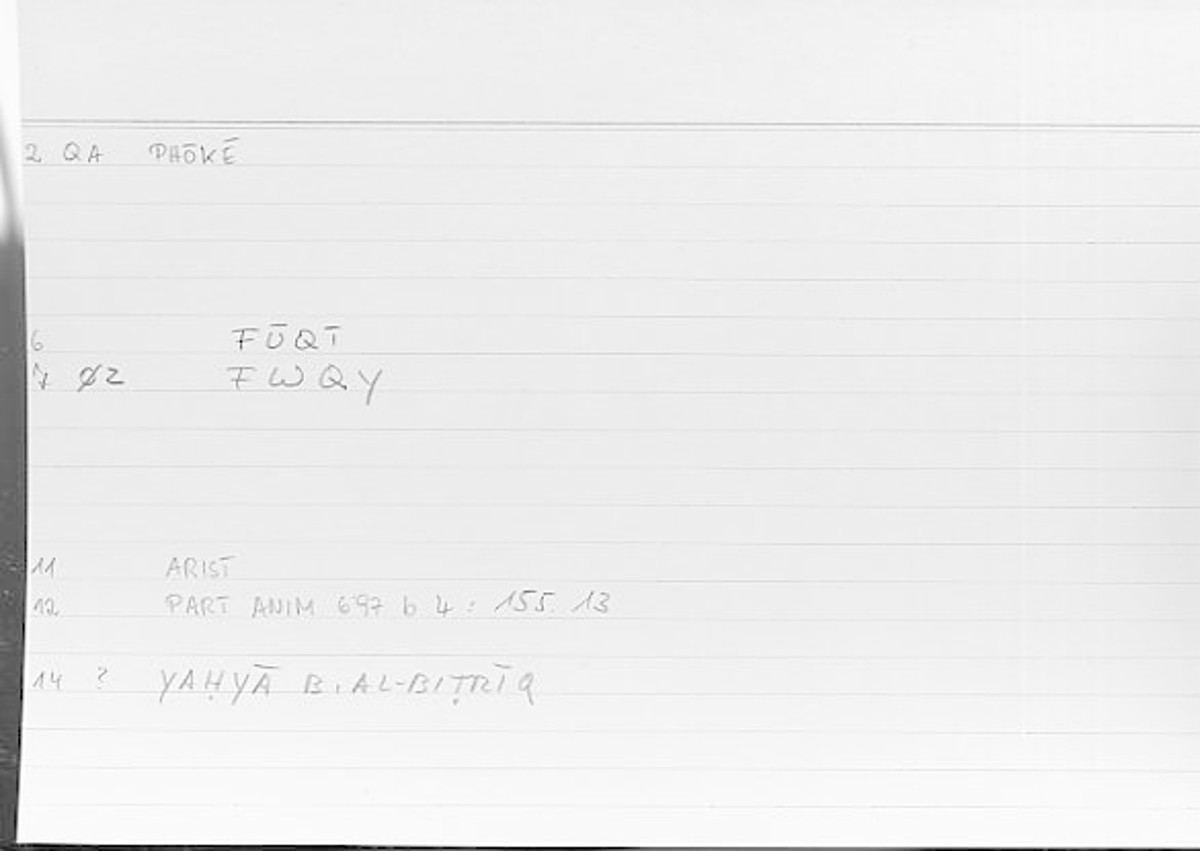 2 QA PHŌKĒ
6 FŪQĪ
7 Ø2 FWQY
11 ARIST
12 PART ANIM 697 b 4 : 155.13
14 ? YAḤYĀ B. AL-BIṬRĪQ